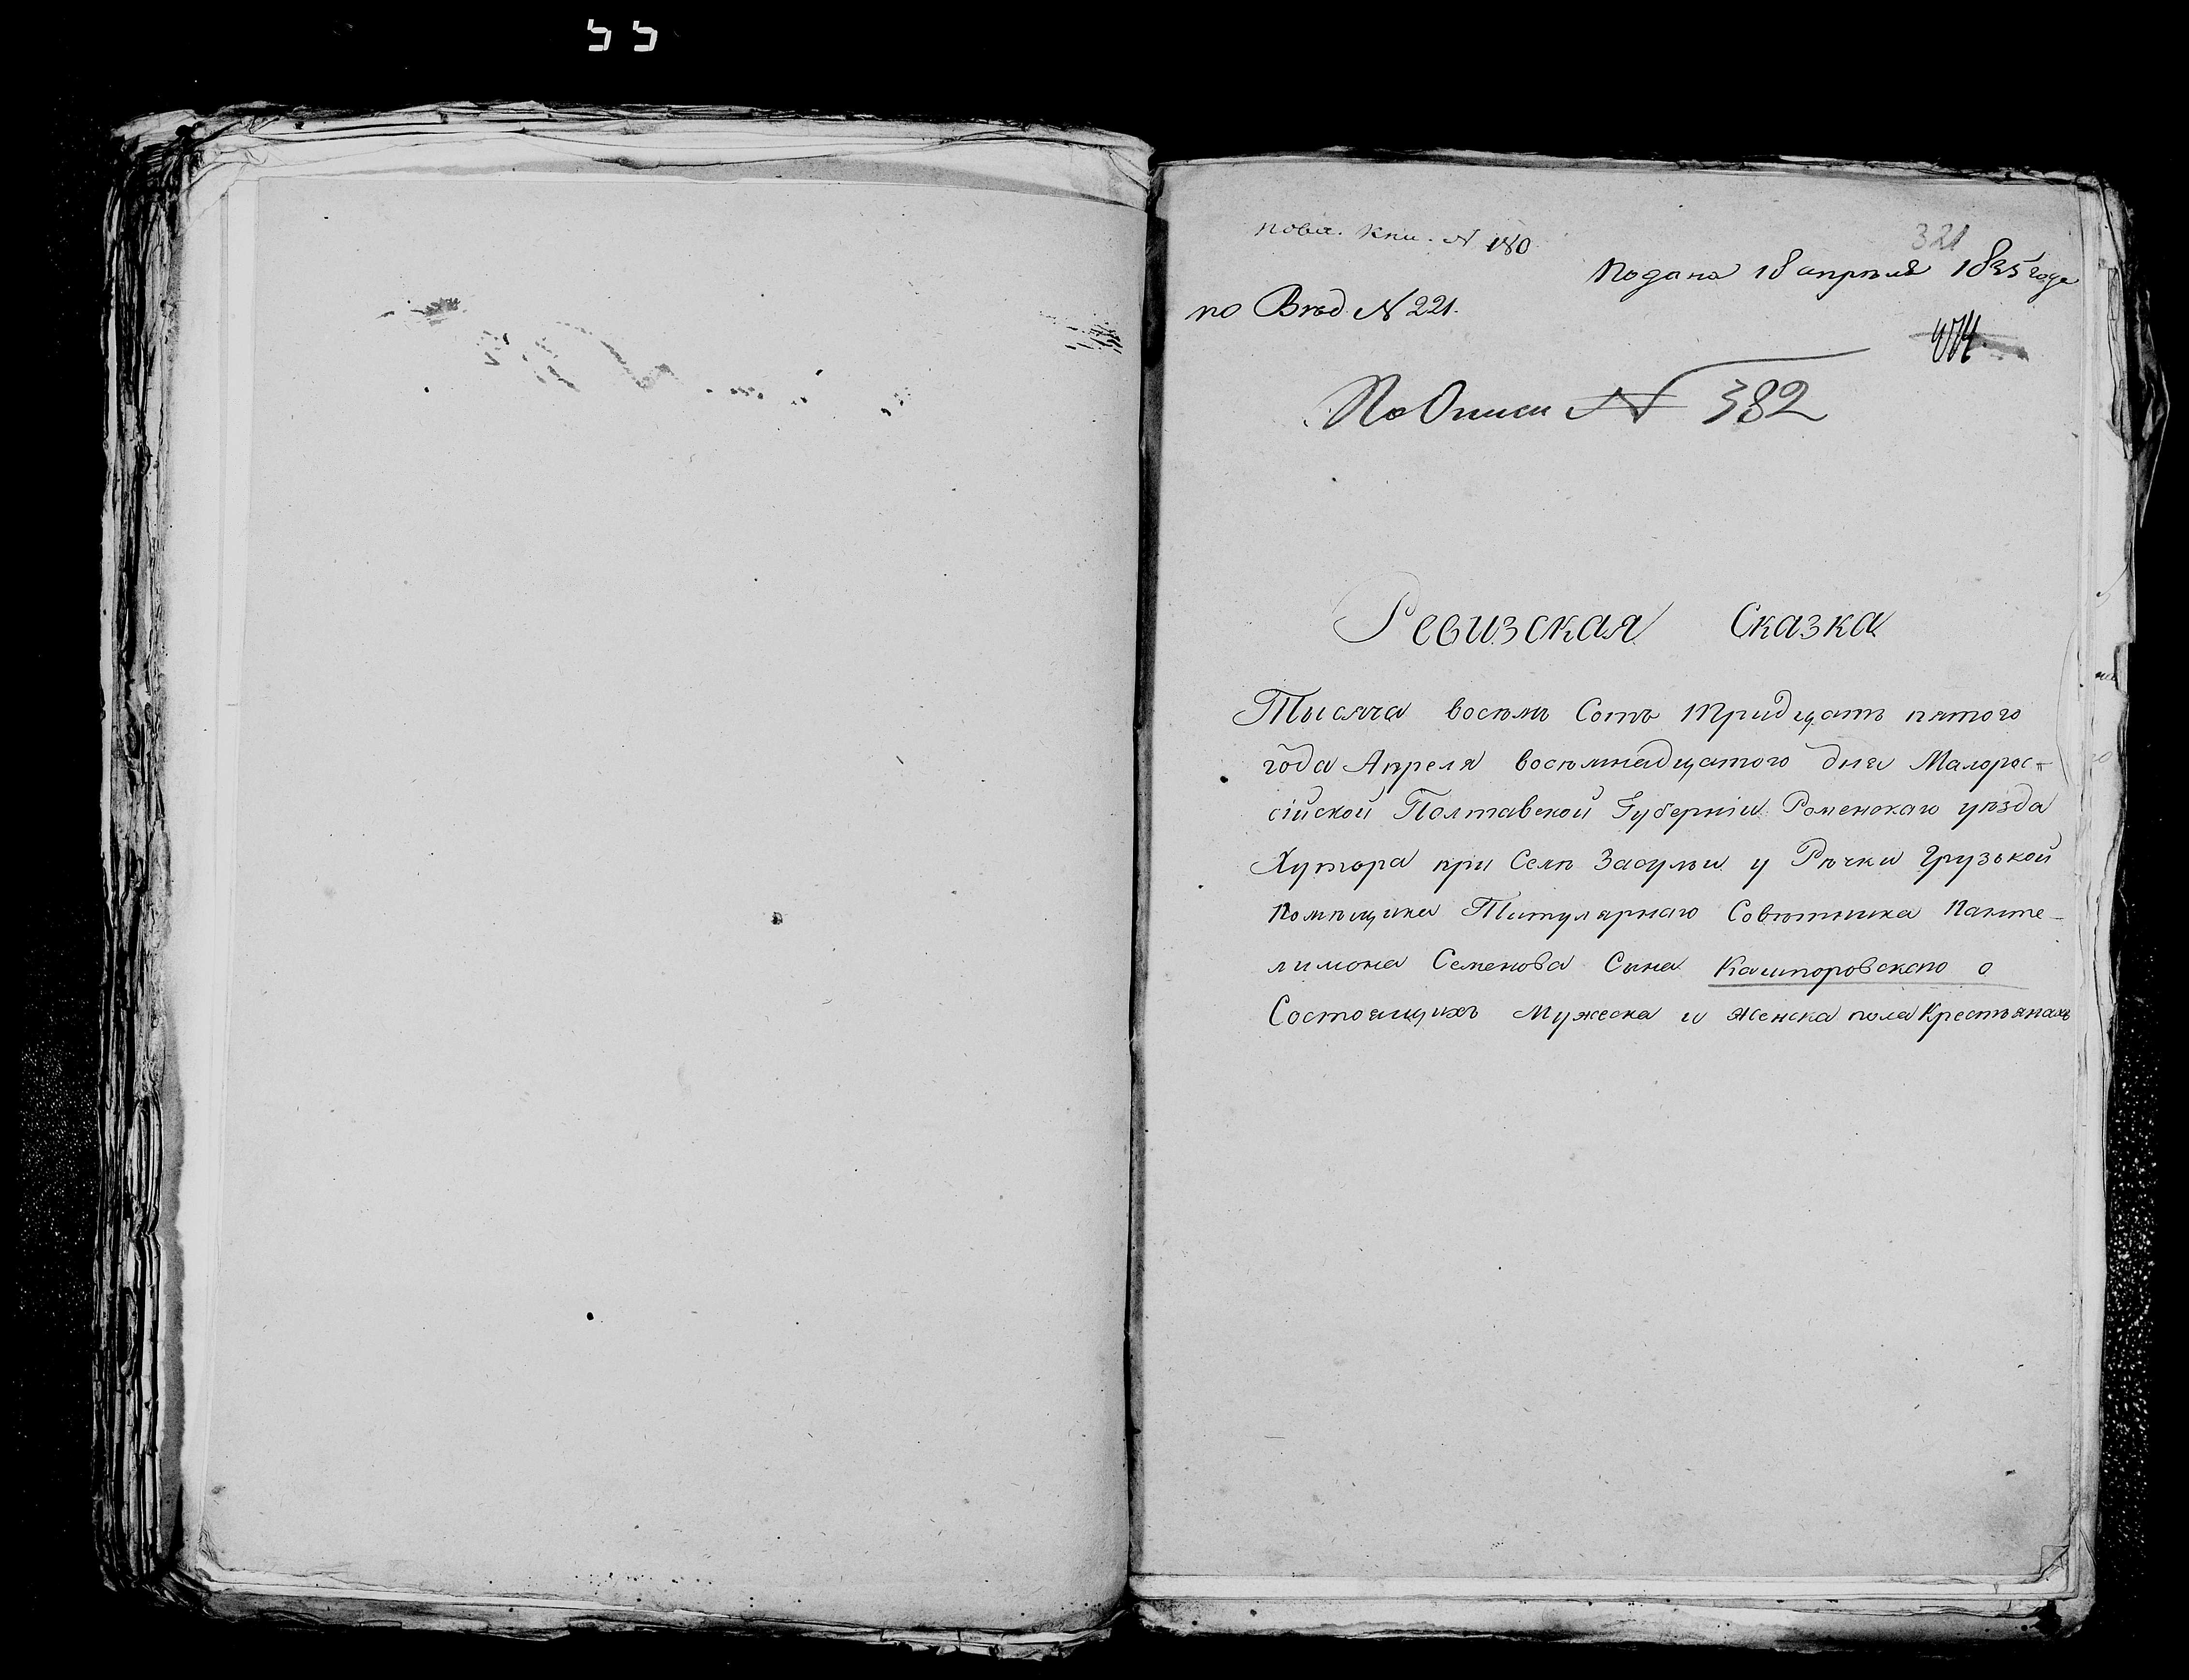 пода. кни. № 180
321
Подана 18 апрѣля 1835 года
по Вѣд. № 221.
По Описи № 382
Ревизская Сказка
Тысяча восѣмь Сотъ тридцать пятого
года Апреля восѣмнадцатого дня Малорос-
сійской Полтавской Губерніи Роменскаго уѣзда
Хутора при Селѣ Засульи у Рѣчки Грузькой
Помѣщика Титулярнаго Совѣтника Панте-
лимона Семенова Сына Кашпоровскаго о
Состоящихъ Мужеска и Женска пола Крестьянахъ